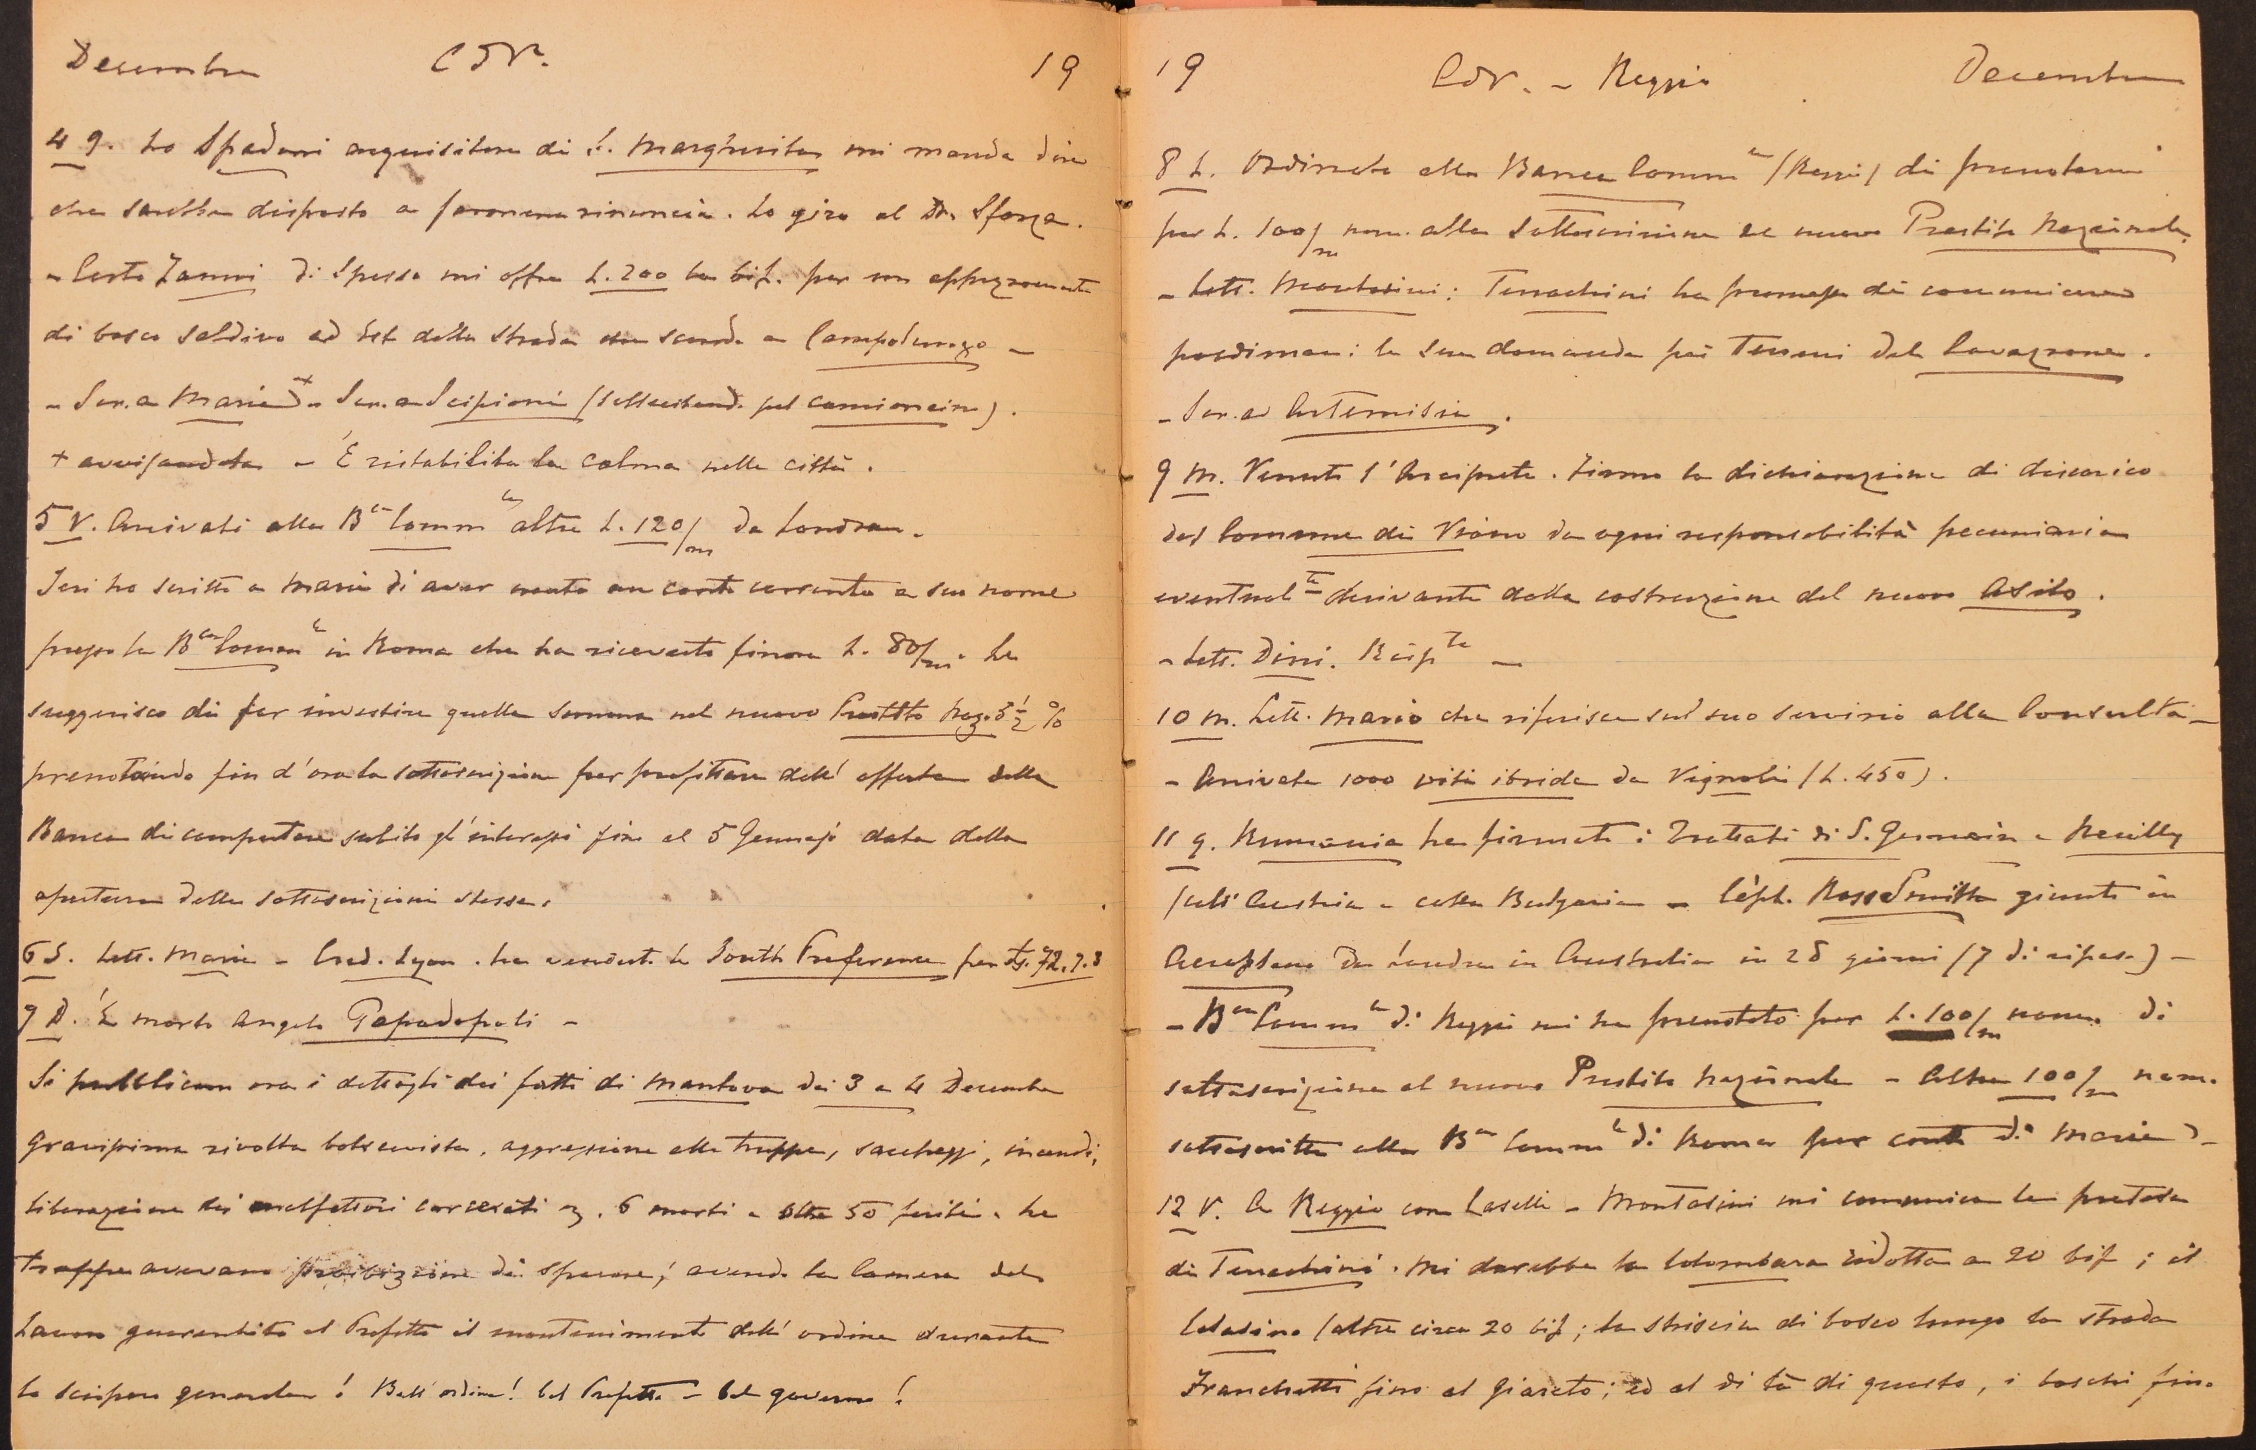 Decembre CdV. 19
4 g. Lo Spadoni acquisitore di S. Margherita mi manda dire
che sarebbe disposto a farmene rinuncia. Lo giro al Dr. Sforza.
- Certo Zanni di Spesso mi offre L. 200 la bif. per un appezzamento
di bosco saldivo ad Est della strada che scende a Campolungo -
- Scr. a Mario + - Scr. a Scipioni (sollecitand. pel camioncino).
+ avvisandola - È ristabilita la calma nelle città.
5 V. Arrivati alla Bca Comm le altre L. 120/m da Londra.
Ieri ho scritto a Mario di aver un conto corrente a suo nome
presso la Bca Comm le in Roma che ha ricevuto finora L. 80/m. Le
suggerisco di far investire quella somma nel nuovo Prestito Naz. 5 ½ %
prenotando fin d'ora la sottoscrizione per profittare dell'offerta della
Banca di computare subito gl'interessi fino al 5 Gennajo data della
apertura delle sottoscrizioni stesse.
6 S. Lett. Mario - Cred. Lyon. ha venduto le South Preference per Ls. 72.7.8
7 D. È morto Angelo Papadopoli -
Si pubblicano ora i dettagli dei fatti di Mantova dei 3 e 4 Decembre
Gravissima rivolta bolscevista, aggressione alle truppe, saccheggi, incendi,
liberazione dei malfattori carcerati ec. 6 morti e oltre 50 feriti. Le
truppe avevano proibizione di sparare, avendo la Camera del
Lavoro guarentito al Prefetto il mantenimento dell'ordine durante
lo sciopero generale! Bell'ordine! bel Prefetto - bel governo!
19 CdV. - Reggio Decembre
8 L. Ordinato alla Banca Comm le (Reggio) di prenotarmi
per L. 100/m nom. alla sottoscrizione al nuovo Prestito Nazionale.
- Lett. Montasini: Terrachini ha promesso di comunicare
posdimani la sua domanda pei Terreni del Cavazzone.
- Scr. ad Artemisia.
9 M. Venuto l'Arciprete. Firmo la dichiarazione di discarico
del Comune di Viano da ogni responsabilità pecuniaria
eventual te derivante dalla costruzione del nuovo Asilo.
- Lett. Dini. Risp te -
10 M. Lett. Mario che riferisce sul suo servizio alla Consulta -
- Arrivate 1000 viti ibride da Vignoli (L. 450).
11 g. Rumania ha firmato i Trattati di S. Germain e Neuilly
(coll'Austria e colla Bulgaria - Capt. Ross Smith giunto in
Aeroplano da Londra in Australia in 28 giorni (7 di riposo) -
- Bca Comm le di Reggio mi ha prenotato per L. 100/m nom. di
sottoscrizione al nuovo Prestito Nazionale - Altre 100/m nom.
sottoscritte alla Bca Comm le di Roma per conto di Mario -
12 V. A Reggio con Caselli - Montasini mi comunica le pretese
di Terrachini. Mi darebbe la Colombara ridotta a 20 bif; il
Casino (altre circa 20 bif; la striscia di bosco lungo la strada
Franchetti fino al Giareto; ed al di là di questo, i boschi fino